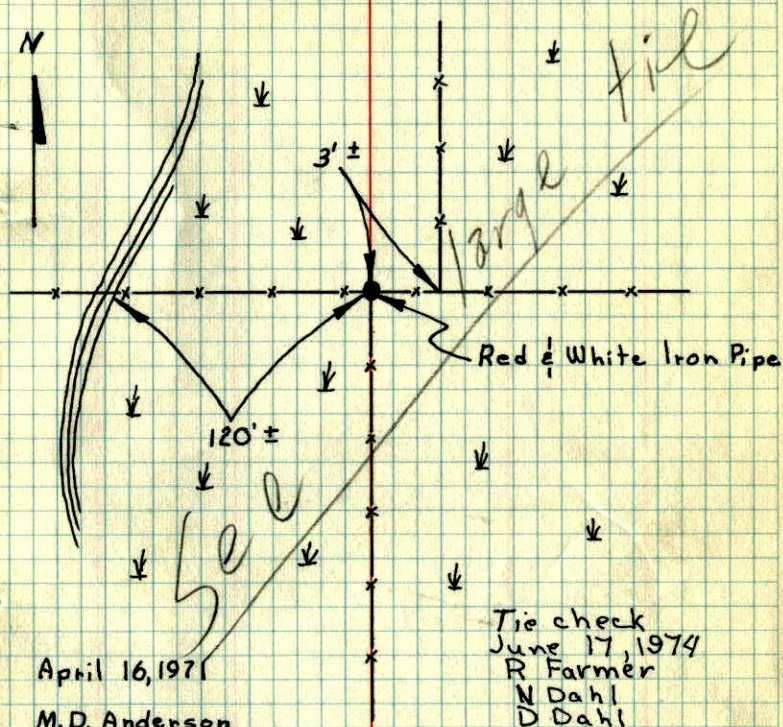 N
3' ±
Red & White Iron Pipe
120' ±
See large tie
April 16, 1971
M.D. Anderson
Tie check
June 17, 1974
R Farmer
N Dahl
D Dahl